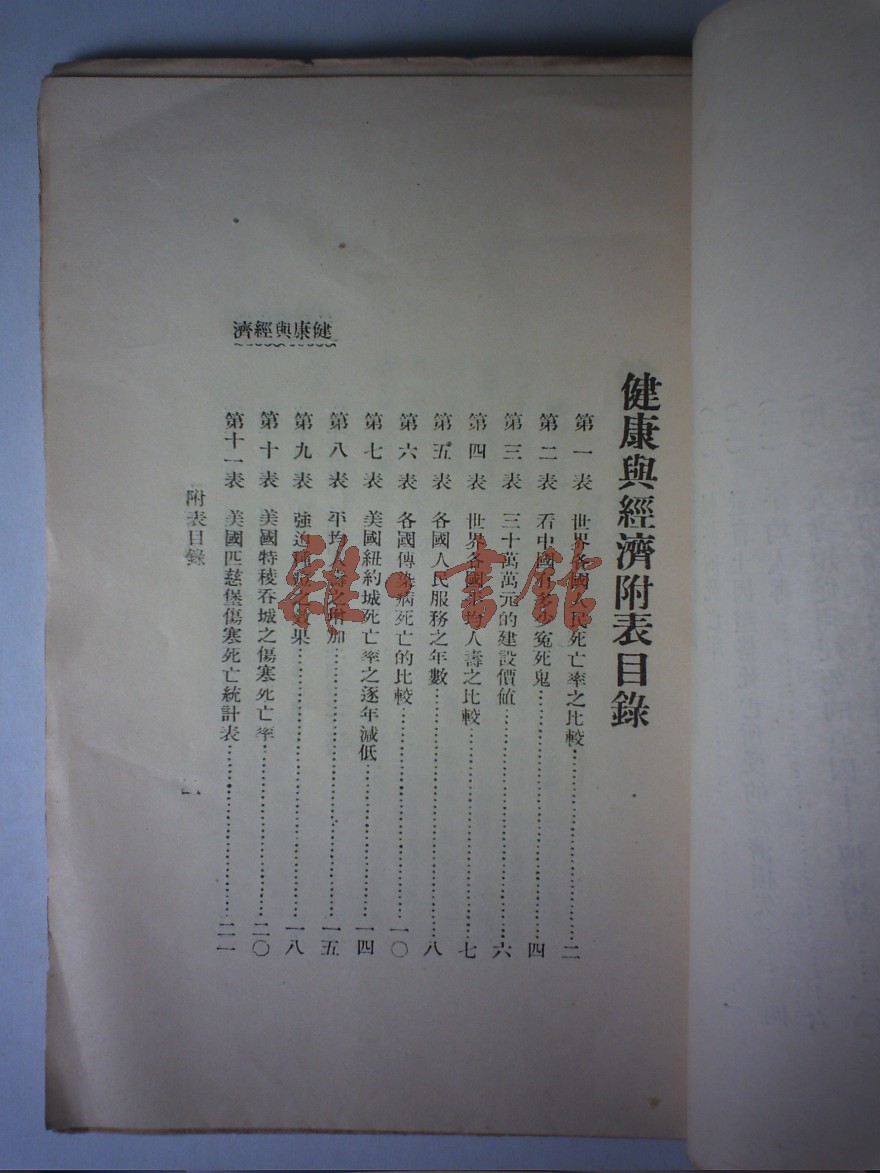 健康與經濟附表目錄
第一表 世界各國人民死亡率之比較……二
第二表 看中國有多少冤死鬼……四
第三表 三十萬萬元的建設價值……六
第四表 世界各國平均人壽之比較……七
第五表 各國人民服務之年數……八
第六表 各國傳染病死亡的比較……一〇
第七表 美國紐約城死亡率之逐年減低……一四
第八表 平均人壽之增加……一五
第九表 強迫種痘之效果……一八
第十表 美國特稜吞城之傷寒死亡率……二〇
第十一表 美國匹慈堡傷寒死亡統計表……二一
健康與經濟
附表目錄
一
雜·書館